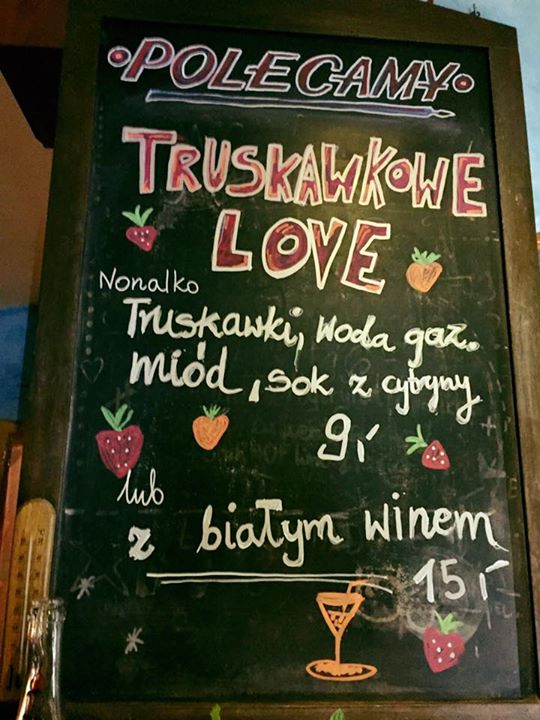 POLECAMY
TRUSKAWKOWE
LOVE
Nonalko
Truskawki, woda gaz.
miód, sok z cytryny
9,-
lub
z białym winem
15,-